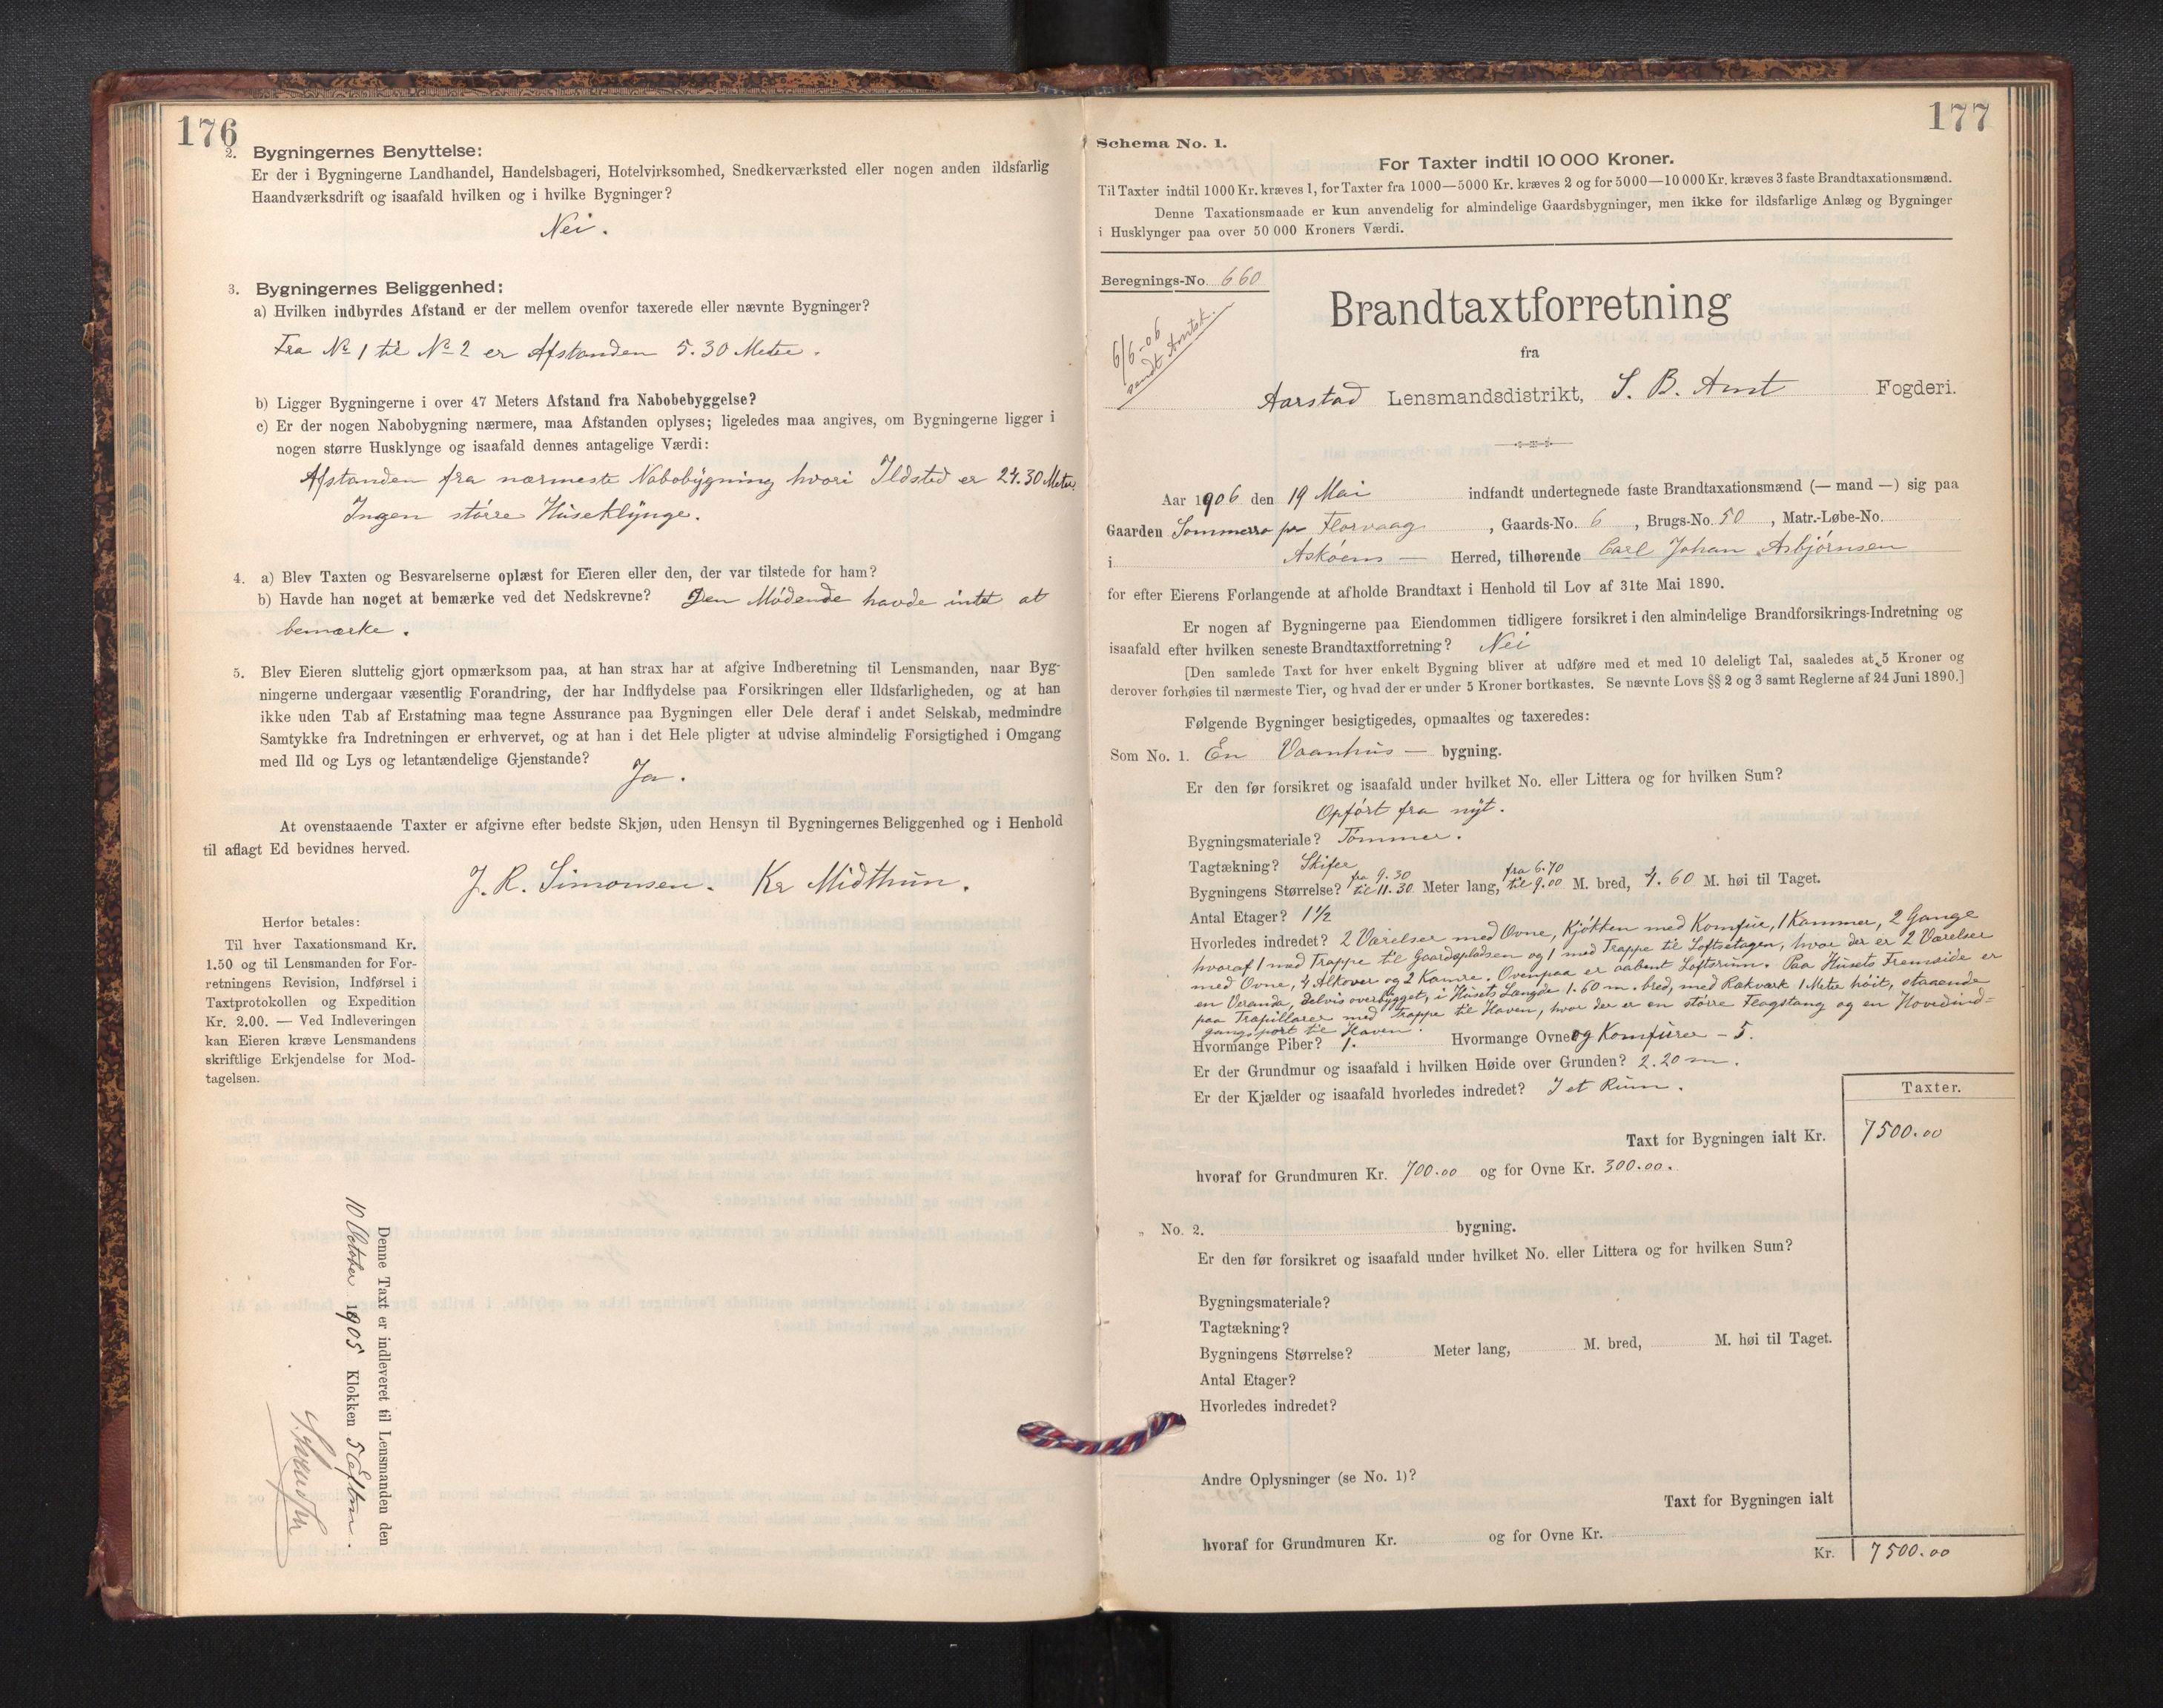 176
2. Bygningernes Benyttelse:
Er der i Bygningerne Landhandel, Handelsbageri, Hotelvirksomhed, Snedkerværksted eller nogen anden ildsfarlig
Haandværksdrift og isaafald hvilken og i hvilke Bygninger?
Nei.
3. Bygningernes Beliggenhed:
a) Hvilken indbyrdes Afstand er der mellem ovenfor taxerede eller nævnte Bygninger?
Fra No 1 til No 2 er Afstanden 5.30 Meter.
b) Ligger Bygningerne i over 47 Meters Afstand fra Nabobebyggelse?
c) Er der nogen Nabobygning nærmere, maa Afstanden oplyses; ligeledes maa angives, om Bygningerne ligger i
nogen større Husklynge og isaafald dennes antagelige Værdi:
Afstanden fra nærmeste Nabobygning hvori Ildsted er 24.30 Meter.
Ingen større Huseklynge.
4. a) Blev Taxten og Besvarelserne oplæst for Eieren eller den, der var tilstede for ham?
b) Havde han noget at bemærke ved det Nedskrevne? Den Mødende havde intet at
bemærke.
5. Blev Eieren sluttelig gjort opmærksom paa, at han strax har at afgive Indberetning til Lensmanden, naar Byg-
ningerne undergaar væsentlig Forandring, der har Indflydelse paa Forsikringen eller Ildsfarligheden, og at han
ikke uden Tab af Erstatning maa tegne Assurance paa Bygningen eller Dele deraf i andet Selskab, medmindre
Samtykke fra Indretningen er erhvervet, og at han i det Hele pligter at udvise almindelig Forsigtighed i Omgang
med Ild og Lys og letantændelige Gjenstande?
Ja.
At ovenstaaende Taxter er afgivne efter bedste Skjøn, uden Hensyn til Bygningernes Beliggenhed og i Henhold
til aflagt Ed bevidnes herved.
J. R. Simonsen. Kr Midthun.
Herfor betales:
Til hver Taxationsmand Kr.
1.50 og til Lensmanden for For-
retningens Revision, Indførsel i
Taxtprotokollen og Expedition
Kr. 2.00. — Ved Indleveringen
kan Eieren kræve Lensmandens
skriftlige Erkjendelse for Mod-
tagelsen.
Denne Taxt er indleveret til Lensmanden den
10 October 1905 Klokken 5 Eftm.
177
Schema No. 1.
For Taxter indtil 10 000 Kroner.
Til Taxter indtil 1000 Kr. kræves 1, for Taxter fra 1000—5000 Kr. kræves 2 og for 5000—10 000 Kr. kræves 3 faste Brandtaxationsmænd.
Denne Taxationsmaade er kun anvendelig for almindelige Gaardsbygninger, men ikke for ildsfarlige Anlæg og Bygninger
i Husklynger paa over 50 000 Kroners Værdi.
Beregnings-No. 660
6/6-06
sendt Amtsk.
Brandtaxtforretning
fra
Aarstad Lensmandsdistrikt, S. B. Amt Fogderi.
Aar 1906 den 19 Mai indfandt undertegnede faste Brandtaxationsmænd (— mand —) sig paa
Gaarden Sommerro pr Florvaag, Gaards-No. 6, Brugs-No. 50, Matr.-Løbe-No.
i Askøens — Herred, tilhørende Carl Johan Asbjørnsen
for efter Eierens Forlangende at afholde Brandtaxt i Henhold til Lov af 31te Mai 1890.
Er nogen af Bygningerne paa Eiendommen tidligere forsikret i den almindelige Brandforsikrings-Indretning og
isaafald efter hvilken seneste Brandtaxtforretning? Nei
[Den samlede Taxt for hver enkelt Bygning bliver at udføre med et med 10 deleligt Tal, saaledes at 5 Kroner og
derover forhøies til nærmeste Tier, og hvad der er under 5 Kroner bortkastes. Se nævnte Lovs §§ 2 og 3 samt Reglerne af 24 Juni 1890.]
Følgende Bygninger besigtigedes, opmaaltes og taxeredes:
Som No. 1. En Vaanhus — bygning.
Er den før forsikret og isaafald under hvilket No. eller Littera og for hvilken Sum?
Opført fra nyt.
Bygningsmateriale? Tømmer.
Tagtækning? Skifer
Bygningens Størrelse? fra 9.30 til 11.30 Meter lang, fra 6.70 til 9.00 M. bred, 4.60 M. høi til Taget.
Antal Etager? 1 1/2
Hvorledes indredet? 2 Værelser med Ovne, Kjøkken med Komfur, 1 Kammer, 2 Gange
hvoraf 1 med Trappe til Gaardspladsen og 1 med Trappe til Loftsetagen, hvor der er 2 Værelser
med Ovne, 4 Alkover og 2 Kamre. Ovenpaa er aabent Loftsrum. Paa Husets Fremside er
en Veranda, delvis overbygget, i Husets Længde 1.60 m. bred, med Rækværk 1 Meter høit, staaende
paa Træpillarer med Trappe til Haven, hvor der er en større Flagstang og en Hovedind=
gangsport til Haven.
Hvormange Piber? 1. Hvormange Ovne og Komfurer - 5.
Er der Grundmur og isaafald i hvilken Høide over Grunden? 2.20 m.
Er der Kjælder og isaafald hvorledes indredet? I et Rum.
Taxter.
Taxt for Bygningen ialt Kr. 7500.00
hvoraf for Grundmuren Kr. 700.00 og for Ovne Kr. 300.00.
„ No. 2. bygning.
Er den før forsikret og isaafald under hvilket No. eller Littera og for hvilken Sum?
Bygningsmateriale?
Tagtækning?
Bygningens Størrelse? Meter lang, M. bred, M. høi til Taget.
Antal Etager?
Hvorledes indredet?
Andre Oplysninger (se No. 1)?
Taxt for Bygningen ialt
hvoraf for Grundmuren Kr. og for Ovne Kr.
Kr. 7500.00